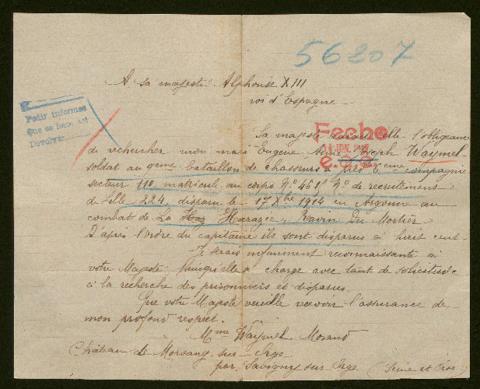 56207
A sa majesté Alphonse XIII
roi d'Espagne
Petit informes
que se
Sa majesté elle l'obligeance
Fecha
de rechercher mon mari Eugène Joseph Waymel
soldat au 9eme bataillon de chasseurs à pied 6eme compagnie
secteur 110, matricul au corps No No de recrutement
de Lille 224, disparu le 17 Xbre 1914 en Argonne au
combat de La Harazée, Ravin Du Mortier
D'après l'ordre du capitaine ils sont disparus à huit cent
Je serais infiniment reconnaissante à
votre Majesté Puisqu'elle a charge avec tant de solicitude
à la recherche des prisonniers et disparus.
Que votre Majesté veuille recevoir l'assurance de
mon profond respect.
Mme Waymel Morand
Château de Morsang sur Orge
par Savigny sur Orge (Seine et Oise)